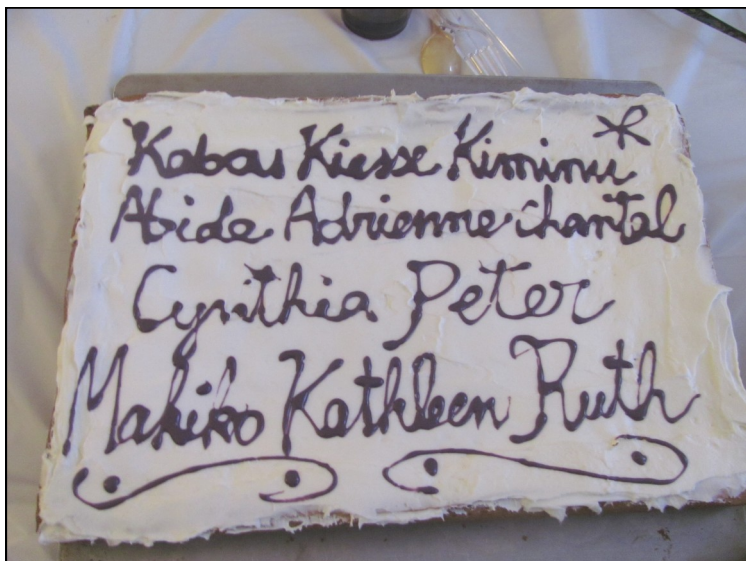 Kabau Kiesse Kiminu
Abide Adrienne Chantal
Cynthia Peter
Mahiko Kathleen Ruth